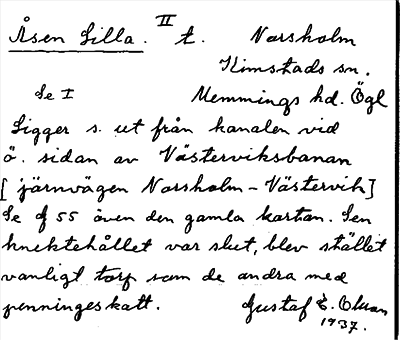 Åsen Lilla. II t. Norsholm
Kimstads sn.
Se I Memmings hd. Ögl
Ligger s. ut från kanalen vid
ö. sidan av Västerviksbanan
[järnvägen Norsholm-Västervik]
Se f 55 även den gamla kartan. Sen
knektehållet var slut, blev stället
vanligt torp som de andra med
penningeskatt. Gustaf E. Olsson
1937.